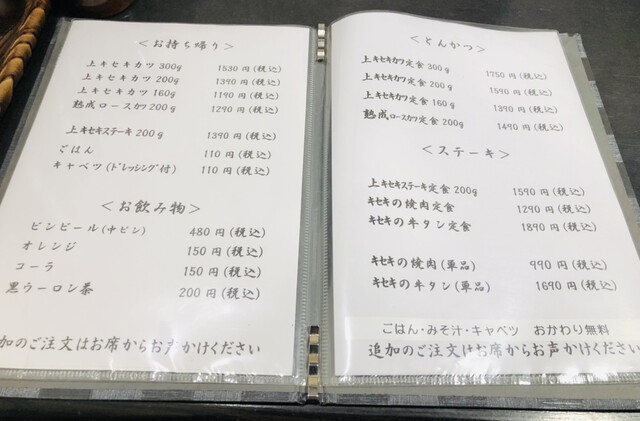 ＜お持ち帰り＞
上キセキカツ 300g 1530円(税込)
上キセキカツ 200g 1390円(税込)
上キセキカツ 160g 1190円(税込)
熟成ロースカツ 200g 1290円(税込)
上キセキステーキ 200g 1390円(税込)
ごはん 110円(税込)
キャベツ(ドレッシング付) 110円(税込)
＜お飲み物＞
ビンビール(中ビン) 480円(税込)
オレンジ 150円(税込)
コーラ 150円(税込)
黒ウーロン茶 200円(税込)
加のご注文はお席からお声かけください
＜とんかつ＞
上キセキカツ定食 300g 1750円(税込)
上キセキカツ定食 200g 1590円(税込)
上キセキカツ定食 160g 1390円(税込)
熟成ロースカツ定食 200g 1490円(税込)
＜ステーキ＞
上キセキステーキ定食 200g 1590円(税込)
キセキの焼肉定食 1290円(税込)
キセキの牛タン定食 1890円(税込)
キセキの焼肉(単品) 990円(税込)
キセキの牛タン(単品) 1690円(税込)
ごはん・みそ汁・キャベツ おかわり無料
追加のご注文はお席からお声かけください